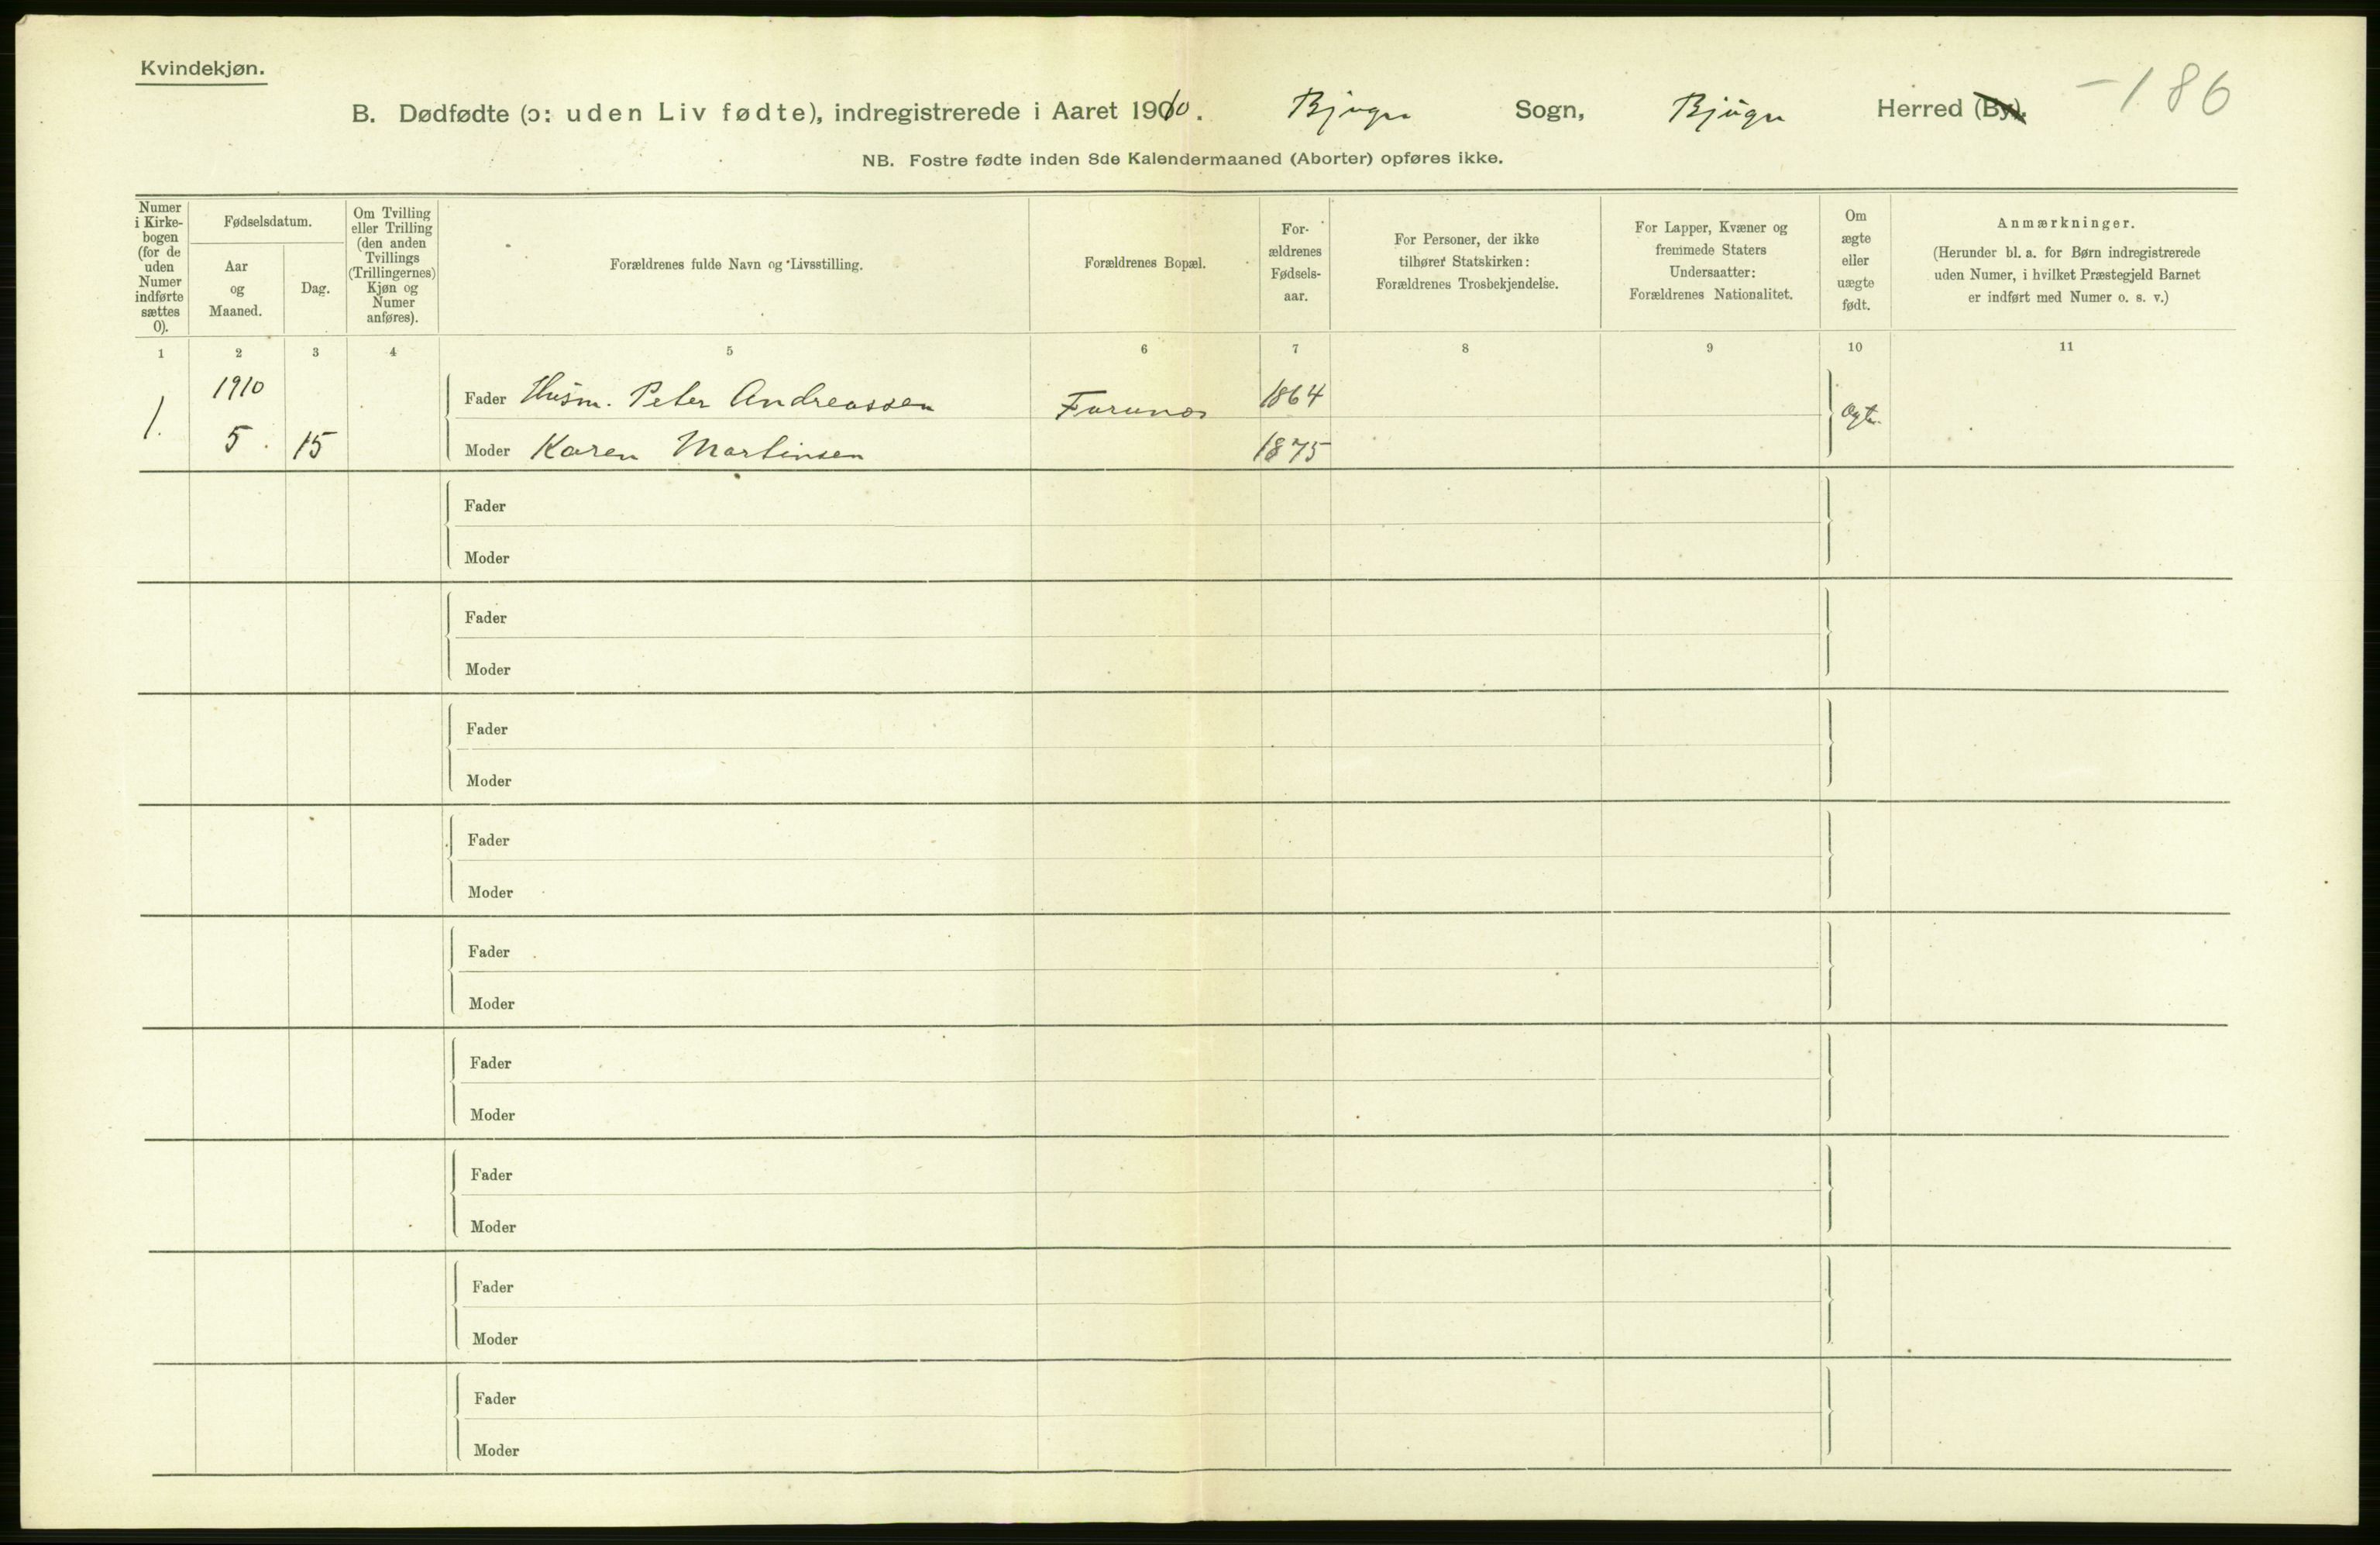 Kvindekjøn.
B. Dødfødte (ɔ: uden Liv fødte), indregistrerede i Aaret 1910. Bjugn Sogn, Bjugn Herred (By). -186
NB. Fostre fødte inden 8de Kalendermaaned (Aborter) opføres ikke.
Numer
i Kirke-
bogen
(for de
uden
Numer
indførte
sættes
0).
Fødselsdatum.
Aar
og
Maaned.
Dag.
Om Tvilling
eller Trilling
(den anden
Tvillings
(Trillingernes)
Kjøn og
Numer
anføres).
Forældrenes fulde Navn og Livsstilling.
Forældrenes Bopæl.
For-
ældrenes
Fødsels-
aar.
For Personer, der ikke
tilhører Statskirken:
Forældrenes Trosbekjendelse.
For Lapper, Kvæner og
fremmede Staters
Undersaatter:
Forældrenes Nationalitet.
Om
ægte
eller
uægte
født.
Anmærkninger.
(Herunder bl. a. for Børn indregistrerede
uden Numer, i hvilket Præstegjeld Barnet
er indført med Numer o. s. v.)
1 2 3 4 5 6 7 8 9 10 11
1. 1910 Fader Husm. Peter Andreassen 1864
5. 15 Moder Karen Martinsen 1875
Fader
Moder
Fader
Moder
Fader
Moder
Fader
Moder
Fader
Moder
Fader
Moder
Fader
Moder
Fader
Moder
Fader
Moder